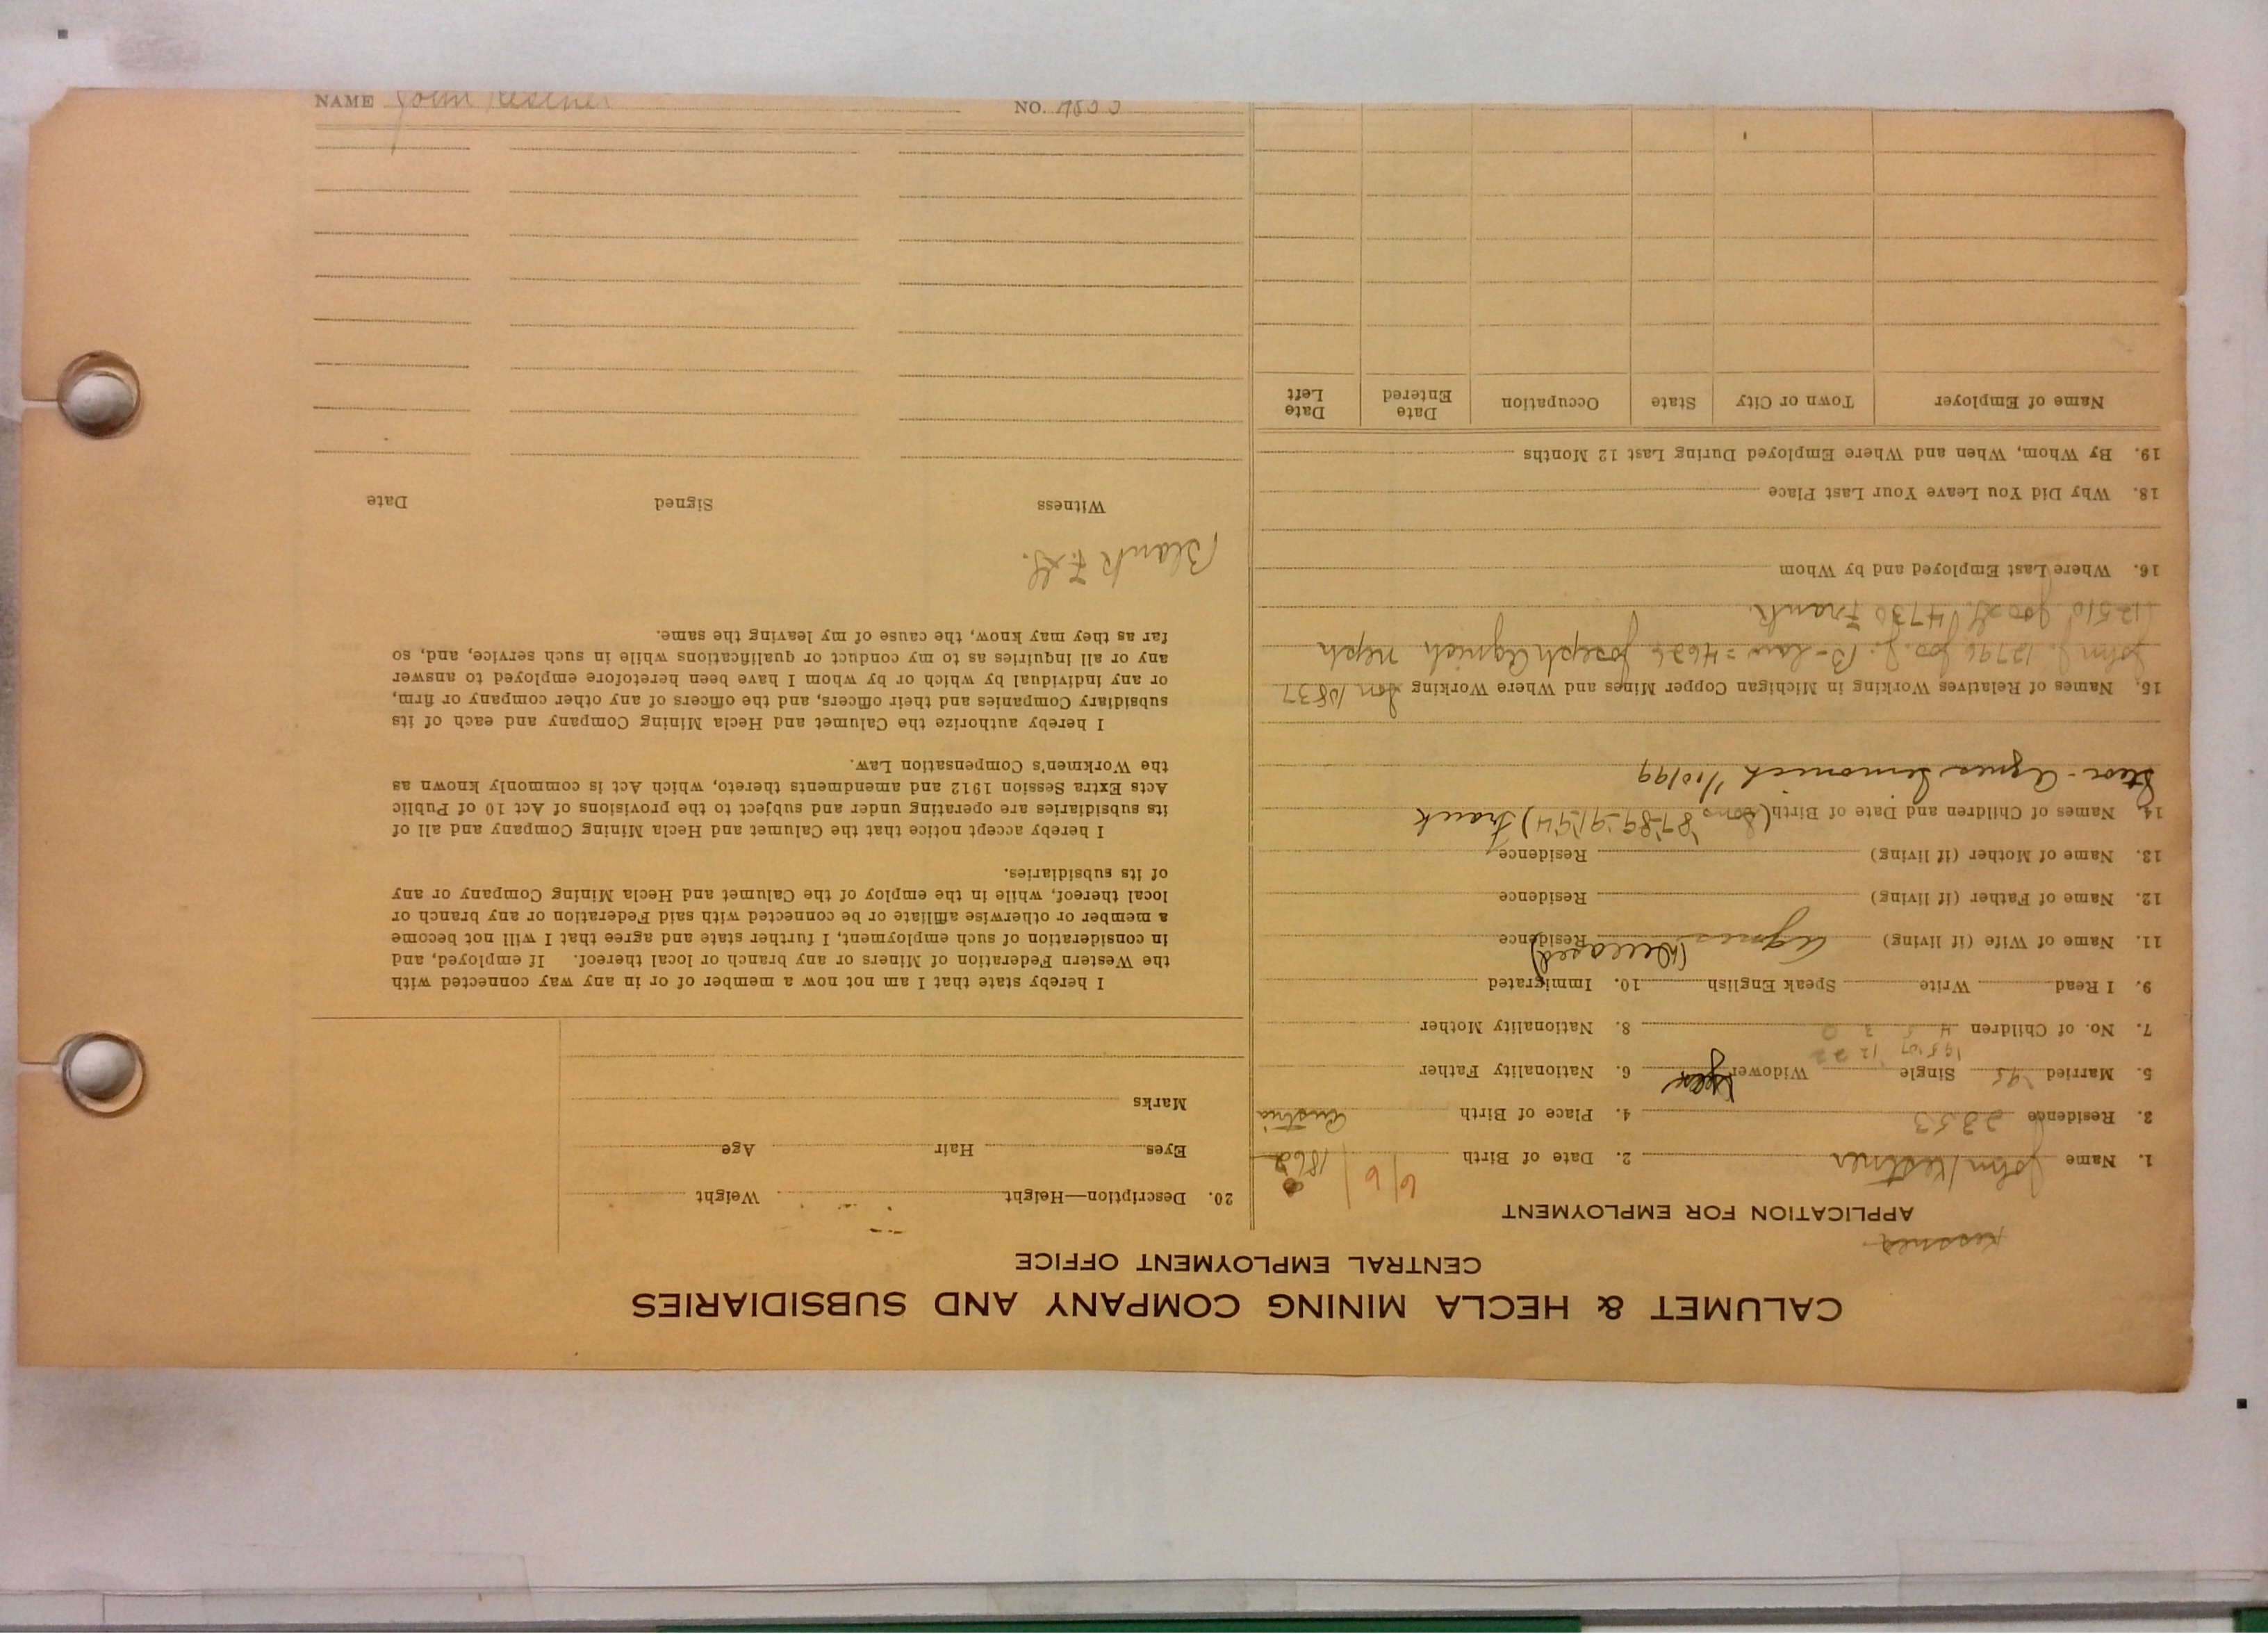 CALUMET & HECLA MINING COMPANY AND SUBSIDIARIES
CENTRAL EMPLOYMENT OFFICE
Kessner
APPLICATION FOR EMPLOYMENT
1. Name John Kestner 2. Date of Birth 6/6/1862
3. Residence 2353 4. Place of Birth Austria
5. Married '95 Single Widower yes 6. Nationality Father
'95 '07 '12 22
7. No. of Children 4 5 3 0 8. Nationality Mother
9. I Read Write Speak English 10. Immigrated
11. Name of Wife (if living) Agnes (Deceased) Residence
12. Name of Father (if living) Residence
13. Name of Mother (if living) Residence
14. Names of Children and Date of Birth (Sons '87-89-91-94) Frank
Agnes 1/10/99
15. Names of Relatives Working in Michigan Copper Mines and Where Working Son 10837
John J. 12796 Jos. J. B-Law = 4626 Joseph Agnich Neph
12510 4730 Frank
16. Where Last Employed and by Whom
18. Why Did You Leave Your Last Place
19. By Whom, When and Where Employed During Last 12 Months
Name of Employer Town or City State Occupation Date Entered Date Left
20. Description—Height Weight
Eyes Hair Age
Marks
I hereby state that I am not now a member of or in any way connected with
the Western Federation of Miners or any branch or local thereof. If employed, and
in consideration of such employment, I further state and agree that I will not become
a member or otherwise affiliate or be connected with said Federation or any branch or
local thereof, while in the employ of the Calumet and Hecla Mining Company or any
of its subsidiaries.
I hereby accept notice that the Calumet and Hecla Mining Company and all of
its subsidiaries are operating under and subject to the provisions of Act 10 of Public
Acts Extra Session 1912 and amendments thereto, which Act is commonly known as
the Workmen's Compensation Law.
I hereby authorize the Calumet and Hecla Mining Company and each of its
subsidiary Companies and their officers, and the officers of any other company or firm,
or any individual by which or by whom I have been heretofore employed to answer
any or all inquiries as to my conduct or qualifications while in such service, and, so
far as they may know, the cause of my leaving the same.
Blank F.
Witness Signed Date
NAME John Kestner NO.